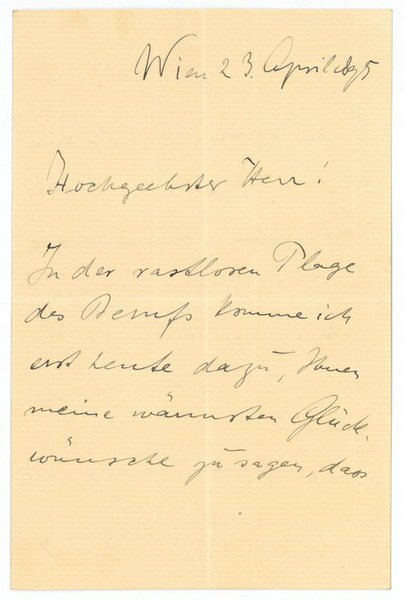 Wien 23. April 895
Hochgeehrter Herr!
In der rastlosen Plage
des Berufs komme ich
erst heute dazu, Ihnen
meine wärmsten Glück-
wünsche zu sagen, dass